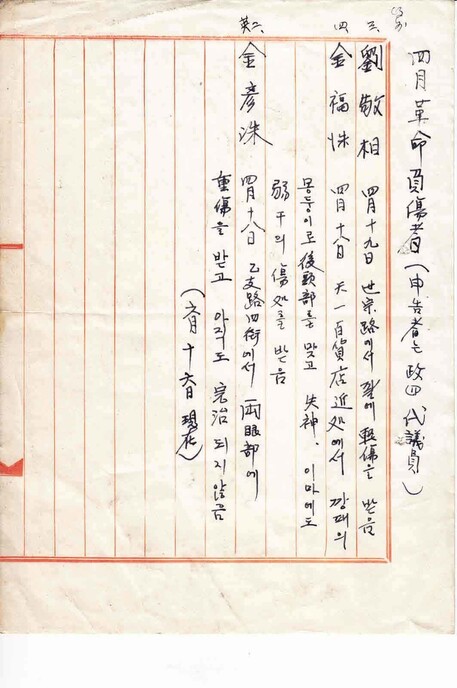 四月革命負傷者 (申告者는 政四 代議員)
三、 劉敬相 四月十九日 世宗路에서 팔에 輕傷을 받음
四 金福洙 四月十八日 天一百貨店近処에서 깡패의
몽둥이로 後頭部를 맞고 失神、 이마에도
弱干의 傷処를 받음
英二、 金彦洙 四月十八日 乙支路四街에서 両眼部에
重傷을 받고 아직도 完治되지 않음
(六月十六日 現在)